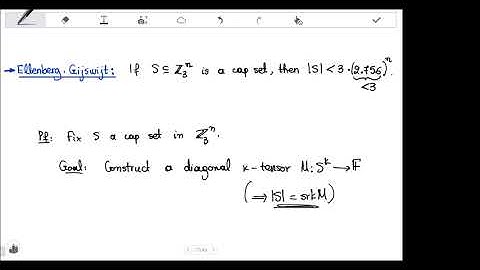 → Ellenberg. Gijswijt: If S ⊆ ℤ₃ⁿ is a cap set, then |S| < 3·(2.756)ⁿ.
<3
Pf: Fix S a cap set in ℤ₃ⁿ.
Goal: Construct a diagonal k-tensor M: Sᵏ → 𝔽
(⟹ |S| = srkM)